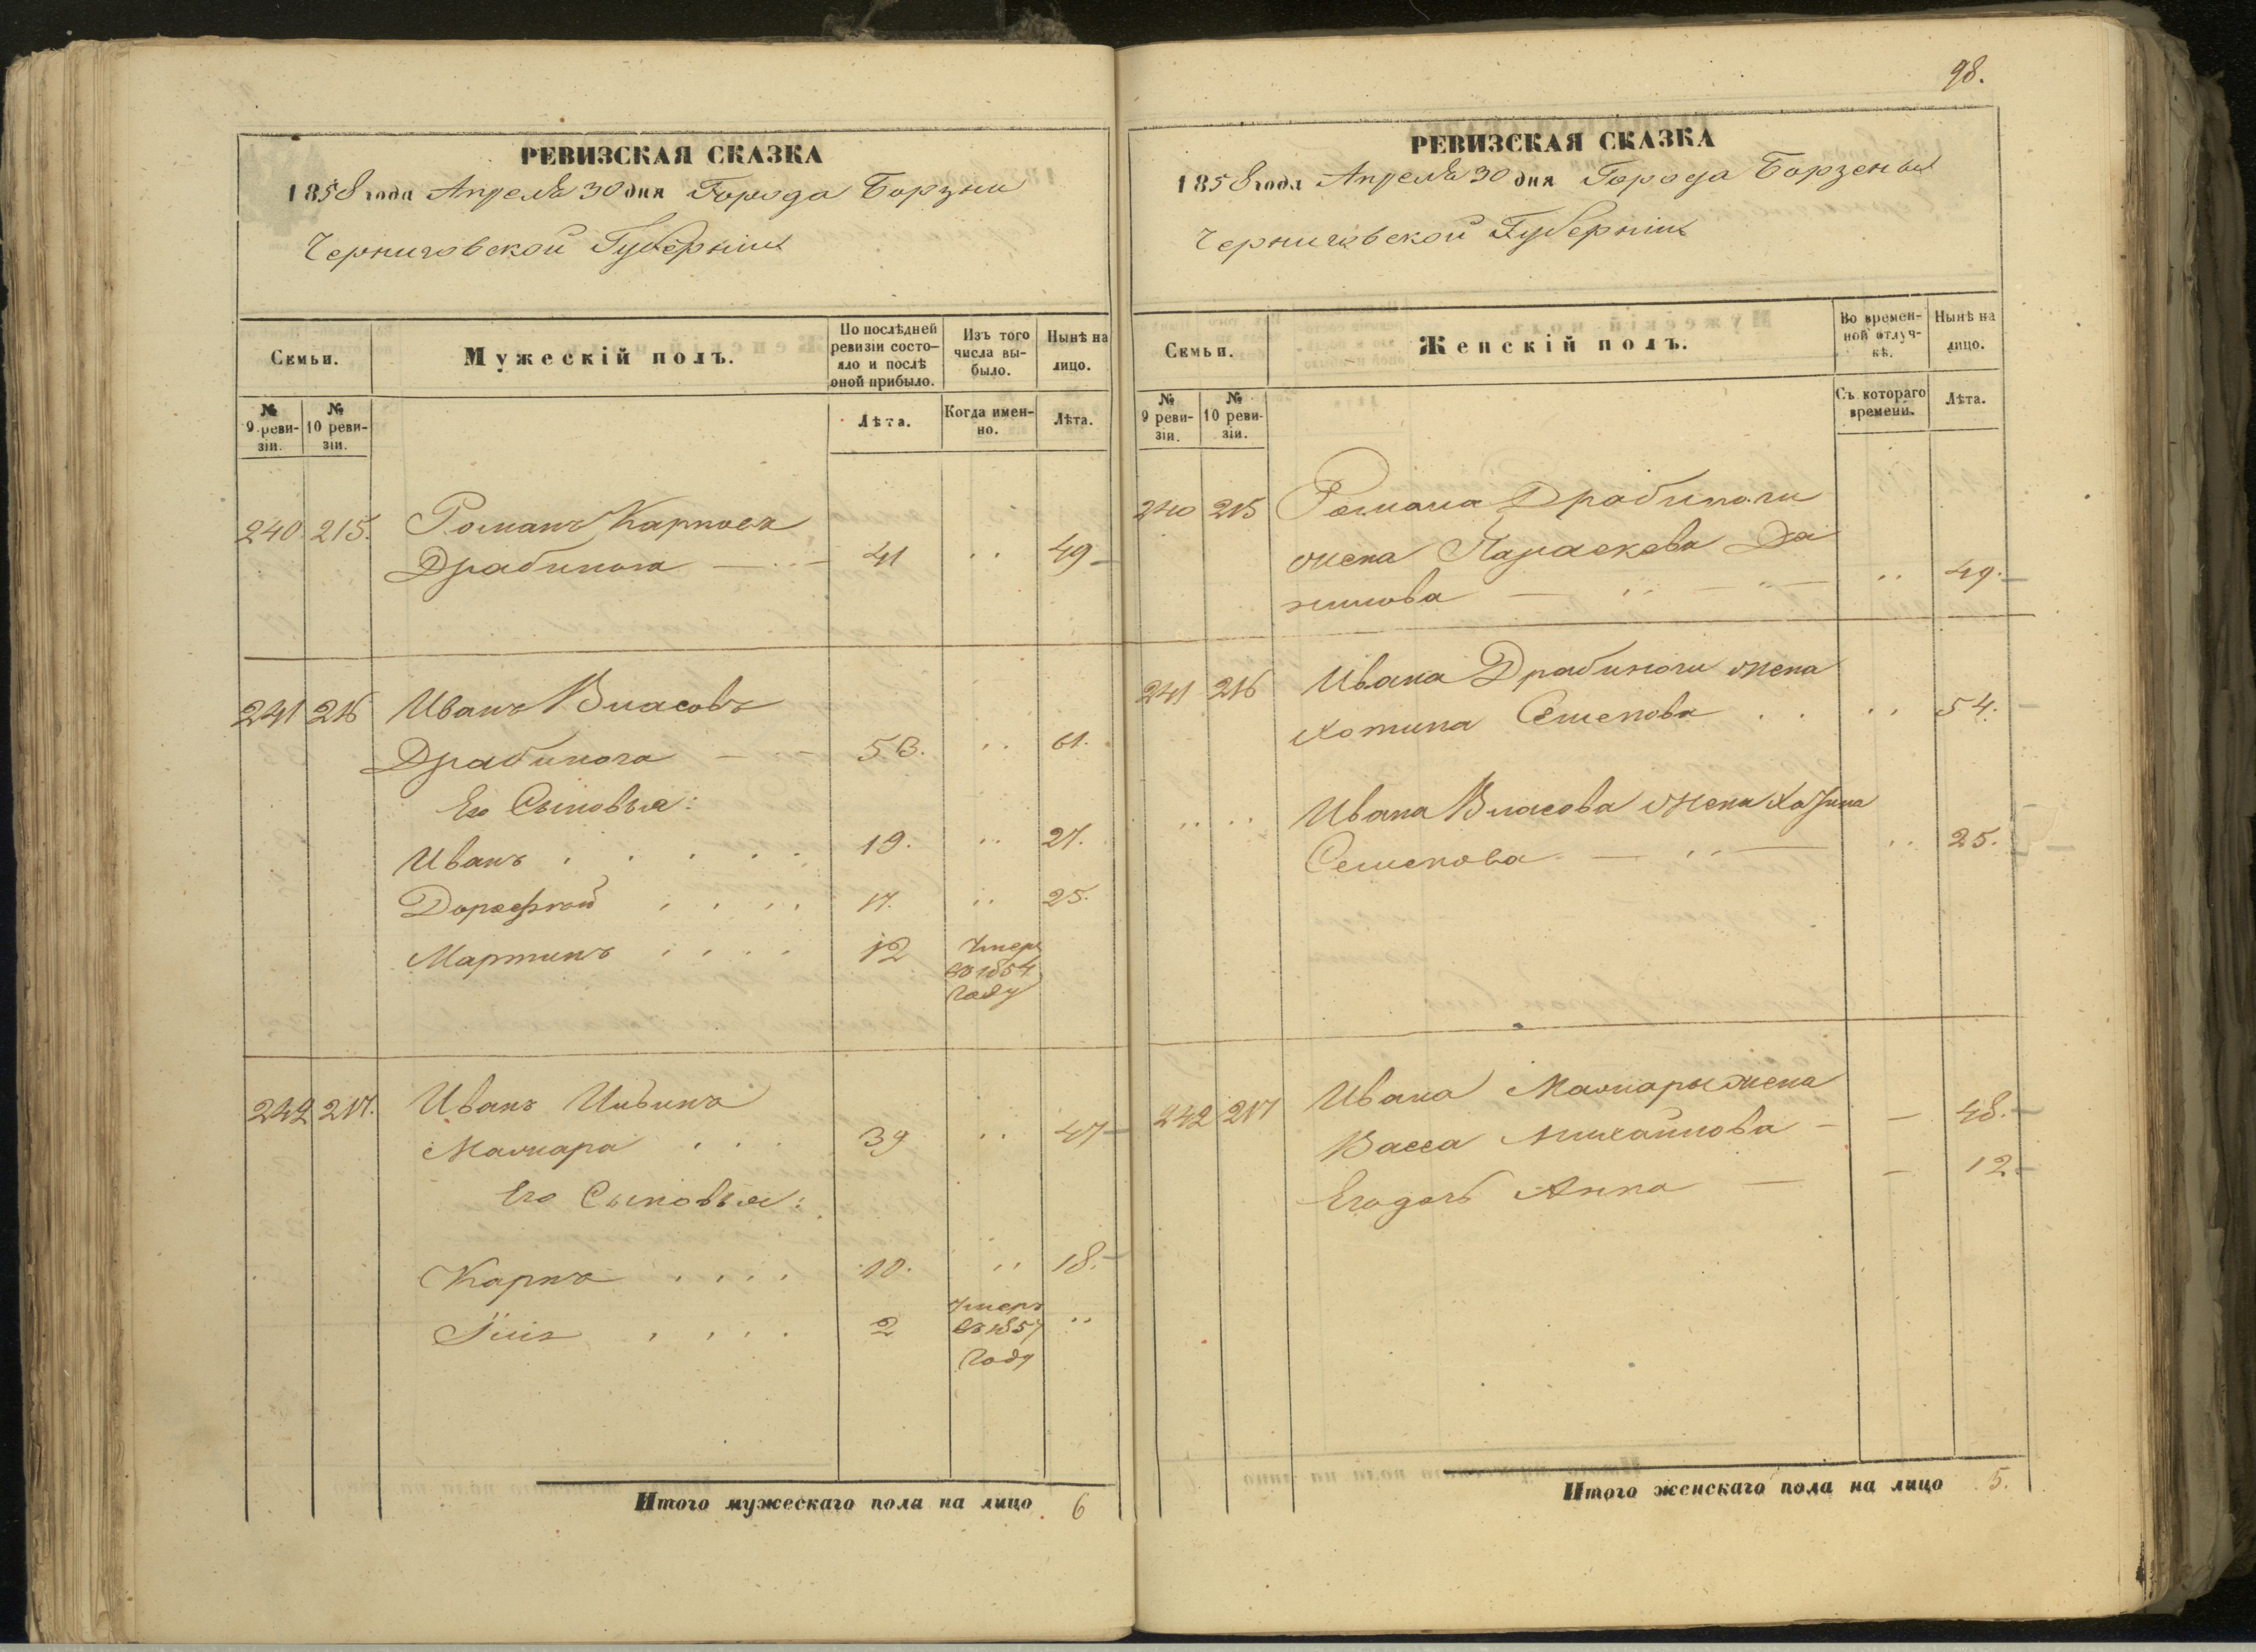 98.
РЕВИЗСКАЯ СКАЗКА
1858 года Апреля 30 дня Города Борзни
Черниговской Губерніи
Семьи.
Мужескій полъ.
По послѣдней ревизіи состояло и послѣ оной прибыло.
Изъ того числа выбыло.
Нынѣ на лицо.
№ 9 ревизіи.
№ 10 ревизіи.
Лѣта.
Когда именно.
Лѣта.
240. 215. Романъ Карповъ
Драбинога 41 49
241 216 Иванъ Власовъ
Драбинога 53. 61.
Его Сыновья:
Иванъ 19. 27.
Дорофей 17. 25.
Мартинъ 12 Умеръ
въ 1854
Году
242 217. Иванъ
39 47
Его Сыновья:
Карпъ 10. 18.
2 Умеръ
въ 1857
Году
Итого мужескаго пола на лицо 6
РЕВИЗСКАЯ СКАЗКА
1858 года Апреля 30 дня Города Борзены
Черниговской Губерніи
Семьи.
Женскій полъ.
Во временной отлучкѣ.
Нынѣ на лицо.
№ 9 ревизіи.
№ 10 ревизіи.
Съ котораго времени.
Лѣта.
240 215 Романа Драбиноги
жена Параскева Да
нилова 49.
241 216 Ивана Драбиноги жена
Хотина Семенова 54.
Ивана Власова жена Хотина
Семенова 25.
242 217 Ивана жена
Васса Михайлова 48.
Его дочь Анна 12
Итого женскаго пола на лицо 5.